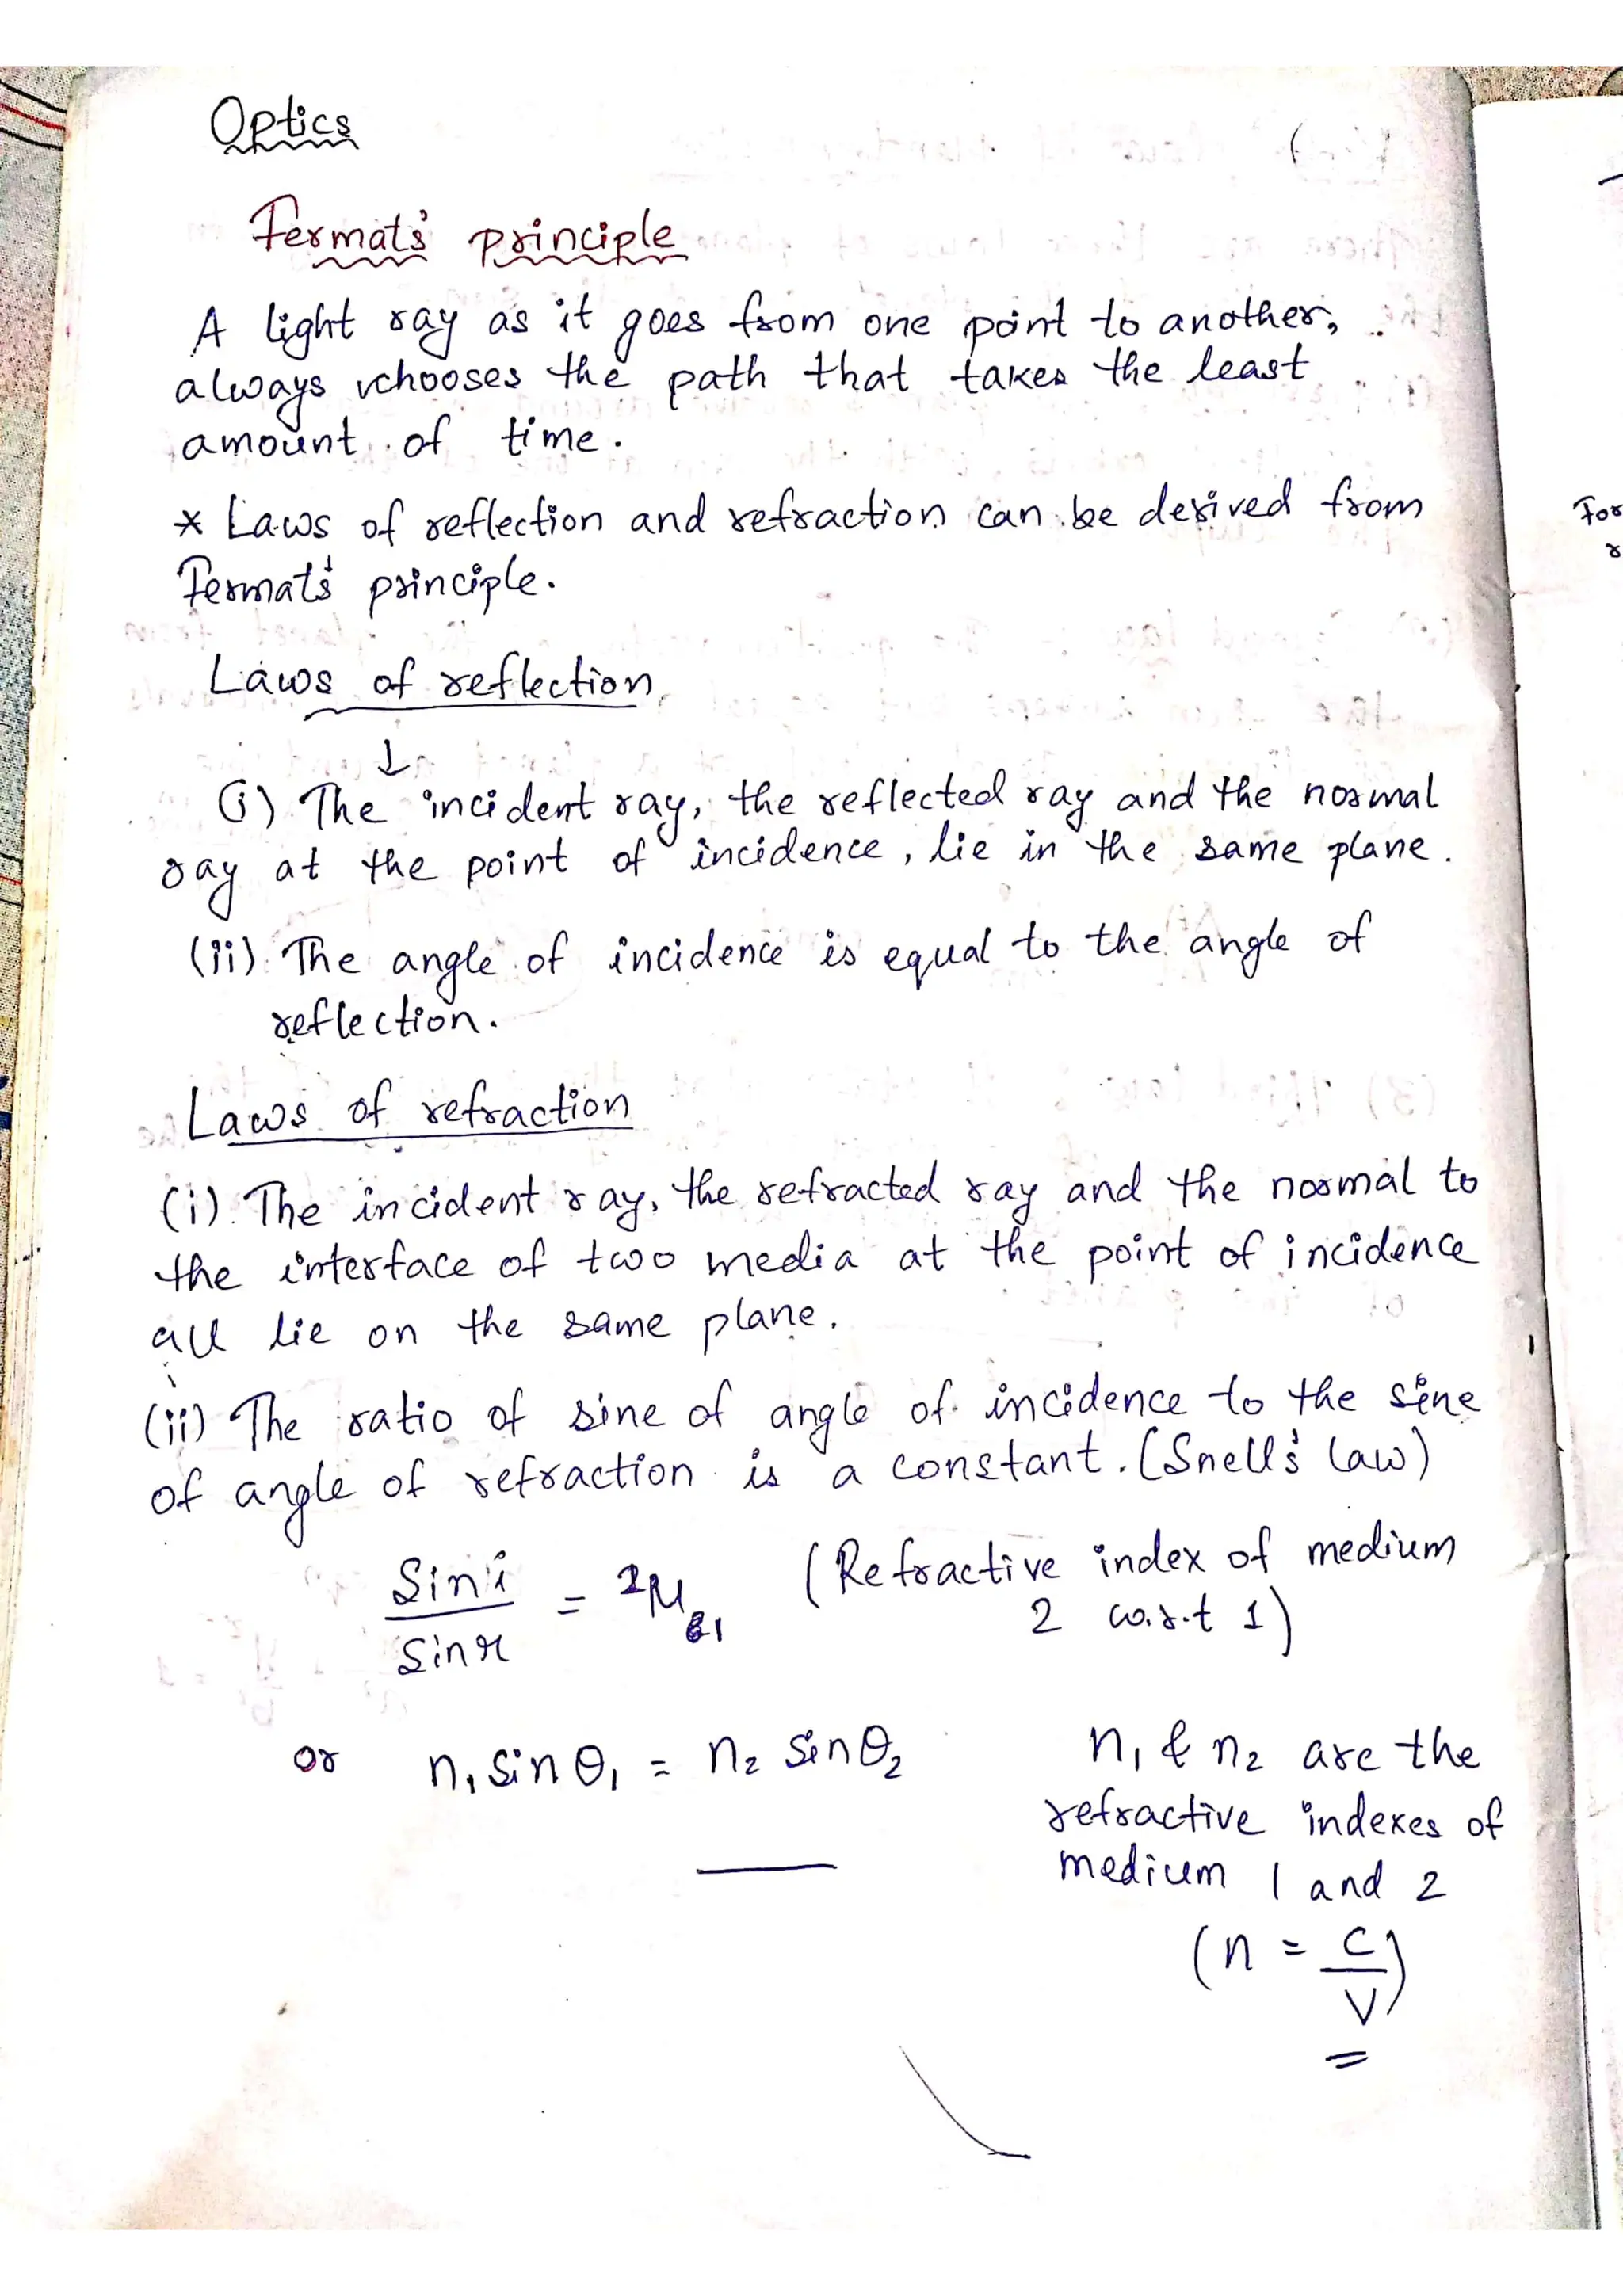 Optics
Fermat's principle
A light ray as it goes from one point to another,
always chooses the path that takes the least
amount of time.
* Laws of reflection and refraction can be derived from
Fermat's principle.
Laws of reflection
↓
(i) The incident ray, the reflected ray and the normal
ray at the point of incidence, lie in the same plane.
(ii) The angle of incidence is equal to the angle of
reflection.
Laws of refraction
(i). The incident ray, the refracted ray and the normal to
the interface of two media at the point of incidence
all lie on the same plane.
(ii) The ratio of sine of angle of incidence to the sine
of angle of refraction is a constant. (Snell's law)
Sin i / Sin r = ²μ₁ (Refractive index of medium
2 w.r.t 1)
or n₁ sin θ₁ = n₂ sin θ₂ n₁ & n₂ are the
refractive indexes of
medium 1 and 2
(n = c/v)
For